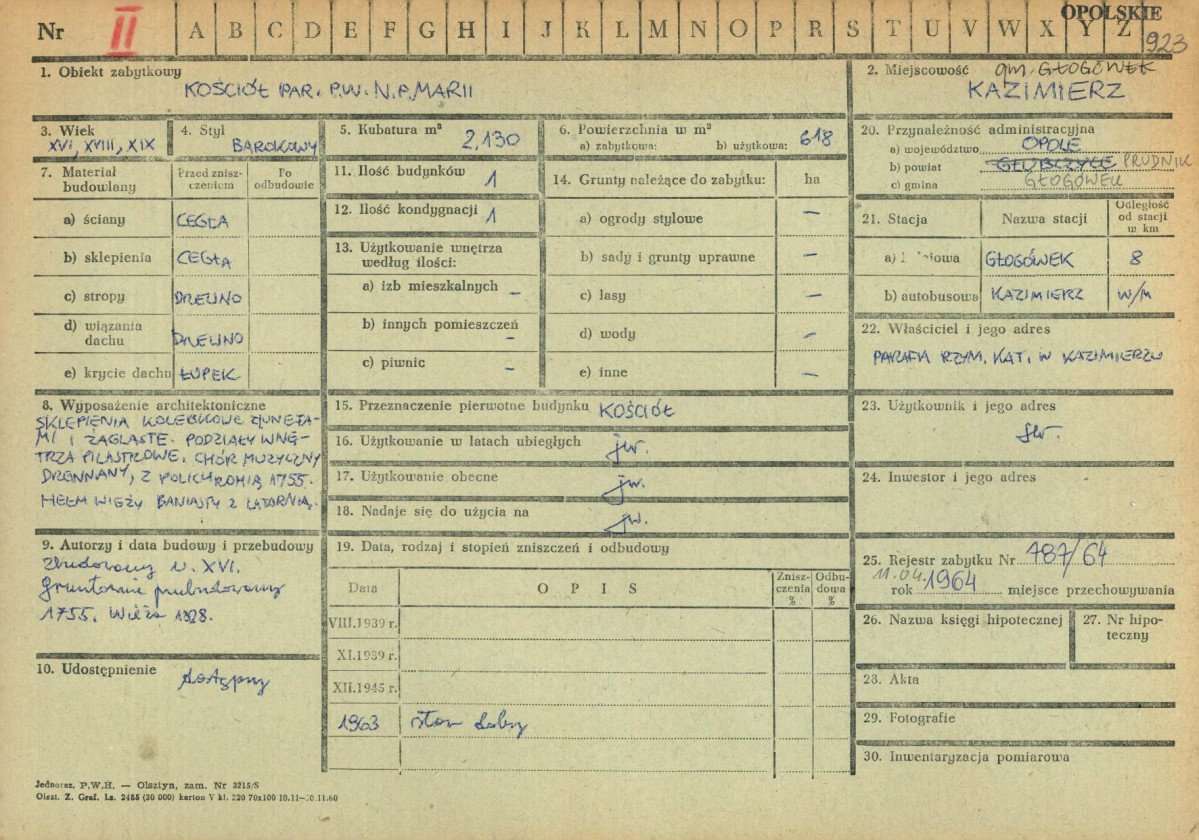 OPOLSKIE
Nr II A B C D E F G H I J K L M N O P R S T U V W X Y Z
923
1. Obiekt zabytkowy
KOŚCIÓŁ PAR. P.W. N.P. MARII
2. Miejscowość gm. GŁOGÓWEK
KAZIMIERZ
3. Wiek
XVI, XVIII, XIX
4. Styl
BAROKOWY
5. Kubatura m³
2,130
6. Powierzchnia w m²
a) zabytkowa: b) użytkowa: 618
7. Materiał budowlany
Przed zniszczeniem
Po odbudowie
a) ściany CEGŁA
b) sklepienia CEGŁA
c) stropy DREWNO
d) wiązania dachu DREWNO
e) krycie dachu ŁUPEK
8. Wyposażenie architektoniczne
SKLEPIENIA KOLEBKOWE Z LUNETA-
MI I ŻAGLASTE. PODZIAŁY WNĘ-
TRZA PILASTROWE. CHÓR MUZYCZNY
DREWNIANY, Z POLICHROMIĄ 1755.
HEŁM WIEŻY BANIASTY Z LATARNIĄ.
9. Autorzy i data budowy i przebudowy
Zbudowany w. XVI.
gruntownie przebudowany
1755. Wieża 1828.
10. Udostępnienie
dostępny
11. Ilość budynków 1
12. Ilość kondygnacji 1
13. Użytkowanie wnętrza
według ilości:
a) izb mieszkalnych –
b) innych pomieszczeń –
c) piwnic –
14. Grunty należące do zabytku: ha
a) ogrody stylowe –
b) sady i grunty uprawne –
c) lasy –
d) wody –
e) inne –
15. Przeznaczenie pierwotne budynku KOŚCIÓŁ
16. Użytkowanie w latach ubiegłych jw.
17. Użytkowanie obecne jw.
18. Nadaje się do użycia na jw.
19. Data, rodzaj i stopień zniszczeń i odbudowy
Data O P I S Zniszczenia % Odbudowa %
VIII.1939 r.
XI.1939 r.
XII.1945 r.
1963 stan dobry
20. Przynależność administracyjna
a) województwo OPOLE
b) powiat GŁUBCZYCE PRUDNIK
c) gmina GŁOGÓWEK
21. Stacja Nazwa stacji Odległość od stacji w km
a) GŁOGÓWEK 8
b) autobusowa KAZIMIERZ w/m
22. Właściciel i jego adres
PARAFIA RZYM. KAT. W KAZIMIERZU
23. Użytkownik i jego adres
jw.
24. Inwestor i jego adres
25. Rejestr zabytku Nr 787/64
11.04.
rok 1964 miejsce przechowywania
26. Nazwa księgi hipotecznej
27. Nr hipoteczny
28. Akta
29. Fotografie
30. Inwentaryzacja pomiarowa
Jednoraz. P.W.H. — Olsztyn, zam. Nr 3215/S
Olszt. Z. Graf. Lz. 2485 (30 000) karton V kl. 220 70x100